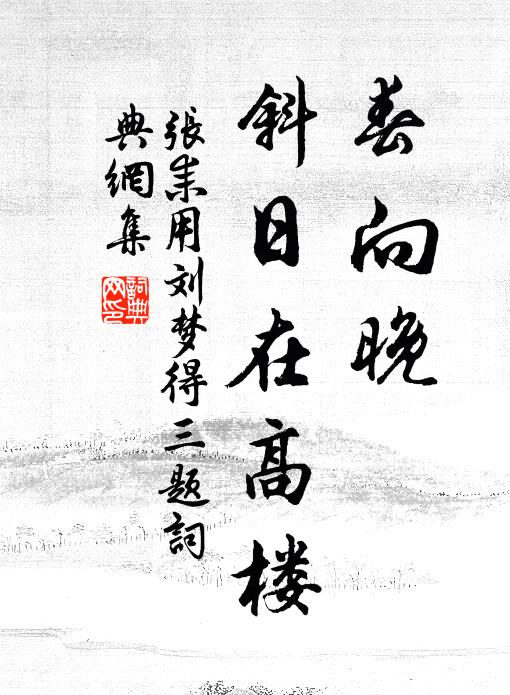 春向晚
斜日在高楼
張耒用刘梦得三题詞
典網集
詞典网印